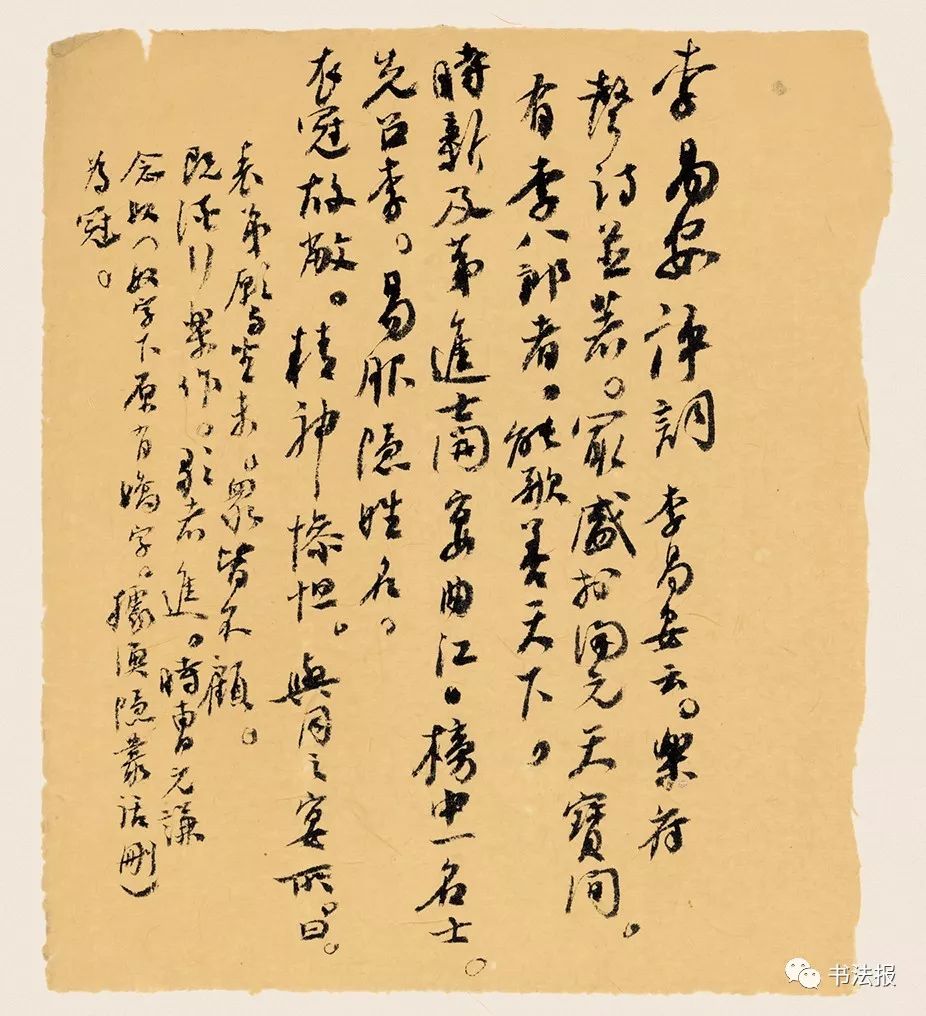 李易安評詞 李易安云。樂府
聲詩並著。最盛於開元天寶間。
有李八郎者。能歌善天下。
時新及第進士開宴曲江。榜中一名士。
先召李。易服隐姓名。
衣冠故敝。精神慘怛。與同之宴所。曰。
表弟願與坐末。眾皆不顧。
既酒行樂作。歌者進。時曹元謙
念奴（奴字下原有嬌字。據漁隐叢話刪）
為冠。
书法报